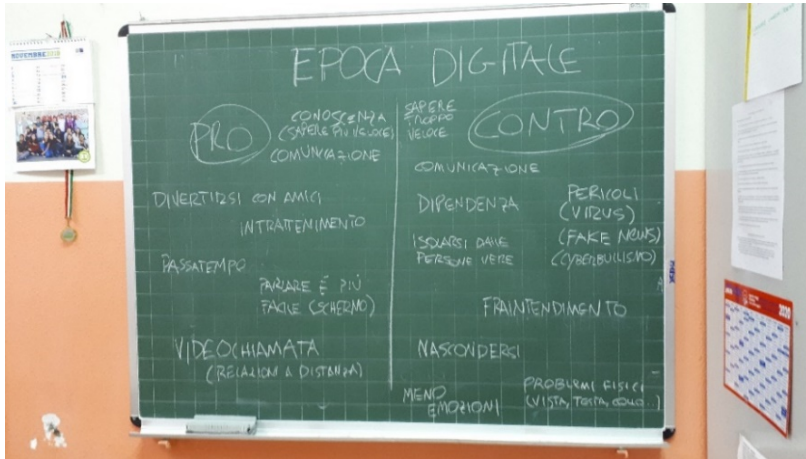 NOVEMBRE
EPOCA DIGITALE
PRO
CONOSCENZA
(SAPERE PIÙ VELOCE)
COMUNICAZIONE
DIVERTIRSI CON AMICI
INTRATTENIMENTO
PASSATEMPO
PARLARE È PIÙ
FACILE (SCHERMO)
VIDEOCHIAMATA
(RELAZIONI A DISTANZA)
SAPERE
TROPPO
VELOCE
CONTRO
COMUNICAZIONE
DIPENDENZA
PERICOLI
(VIRUS)
(FAKE NEWS)
(CYBERBULLISMO)
ISOLARSI DALLE
PERSONE VERE
FRAINTENDIMENTO
NASCONDERSI
MENO
EMOZIONI
PROBLEMI FISICI
(VISTA, TESTA, COLLO...)
2020